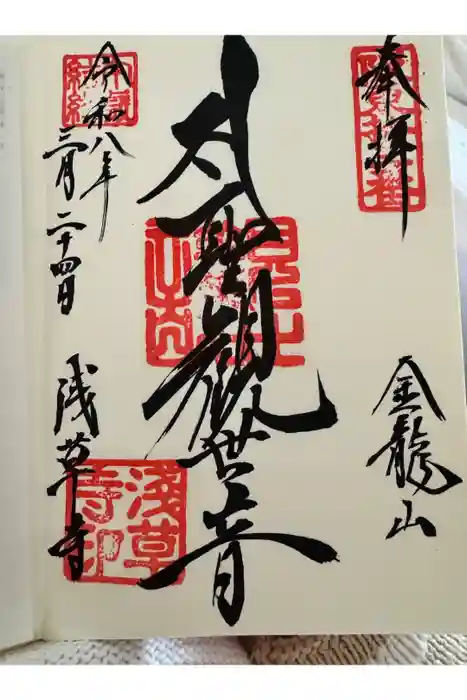 奉拝
金龍山
大聖観世音
令和八年
三月二十四日
浅草寺
淺草
寺印